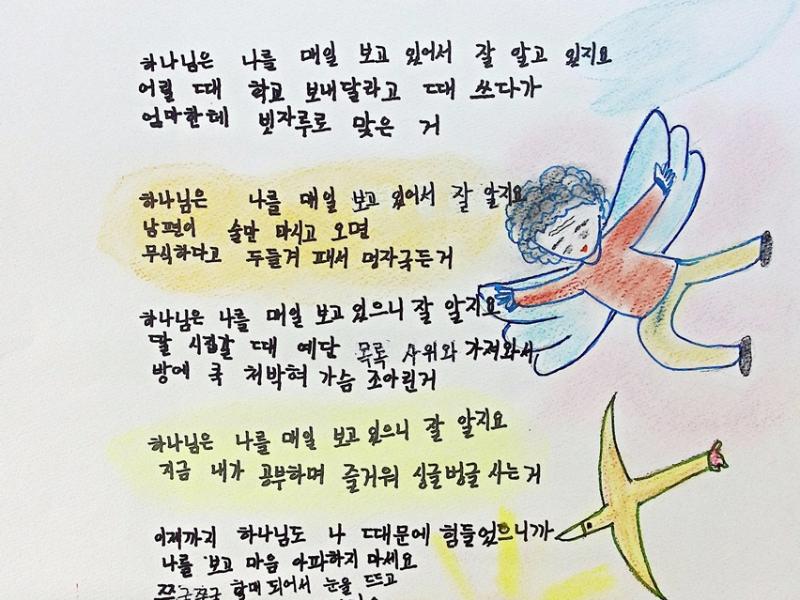 하나님은 나를 매일 보고 있어서 잘 알고 있지요
어릴 때 학교 보내달라고 때 쓰다가
엄마한테 빗자루로 맞은 거
하나님은 나를 매일 보고 있어서 잘 알지요
남편이 술만 마시고 오면
무식하다고 두들겨 패서 멍자국든거
하나님은 나를 매일 보고 있으니 잘 알지요
딸 시집갈 때 예단 목록 사위와 가져와서
방에 콕 처박혀 가슴 조아린거
하나님은 나를 매일 보고 있으니 잘 알지요
지금 내가 공부하며 즐거워 싱글벙글 사는거
이제까지 하나님도 나 때문에 힘들었으니까
나를 보고 마음 아파하지 마세요
쭈글쭈글 할매 되어서 눈을 뜨고